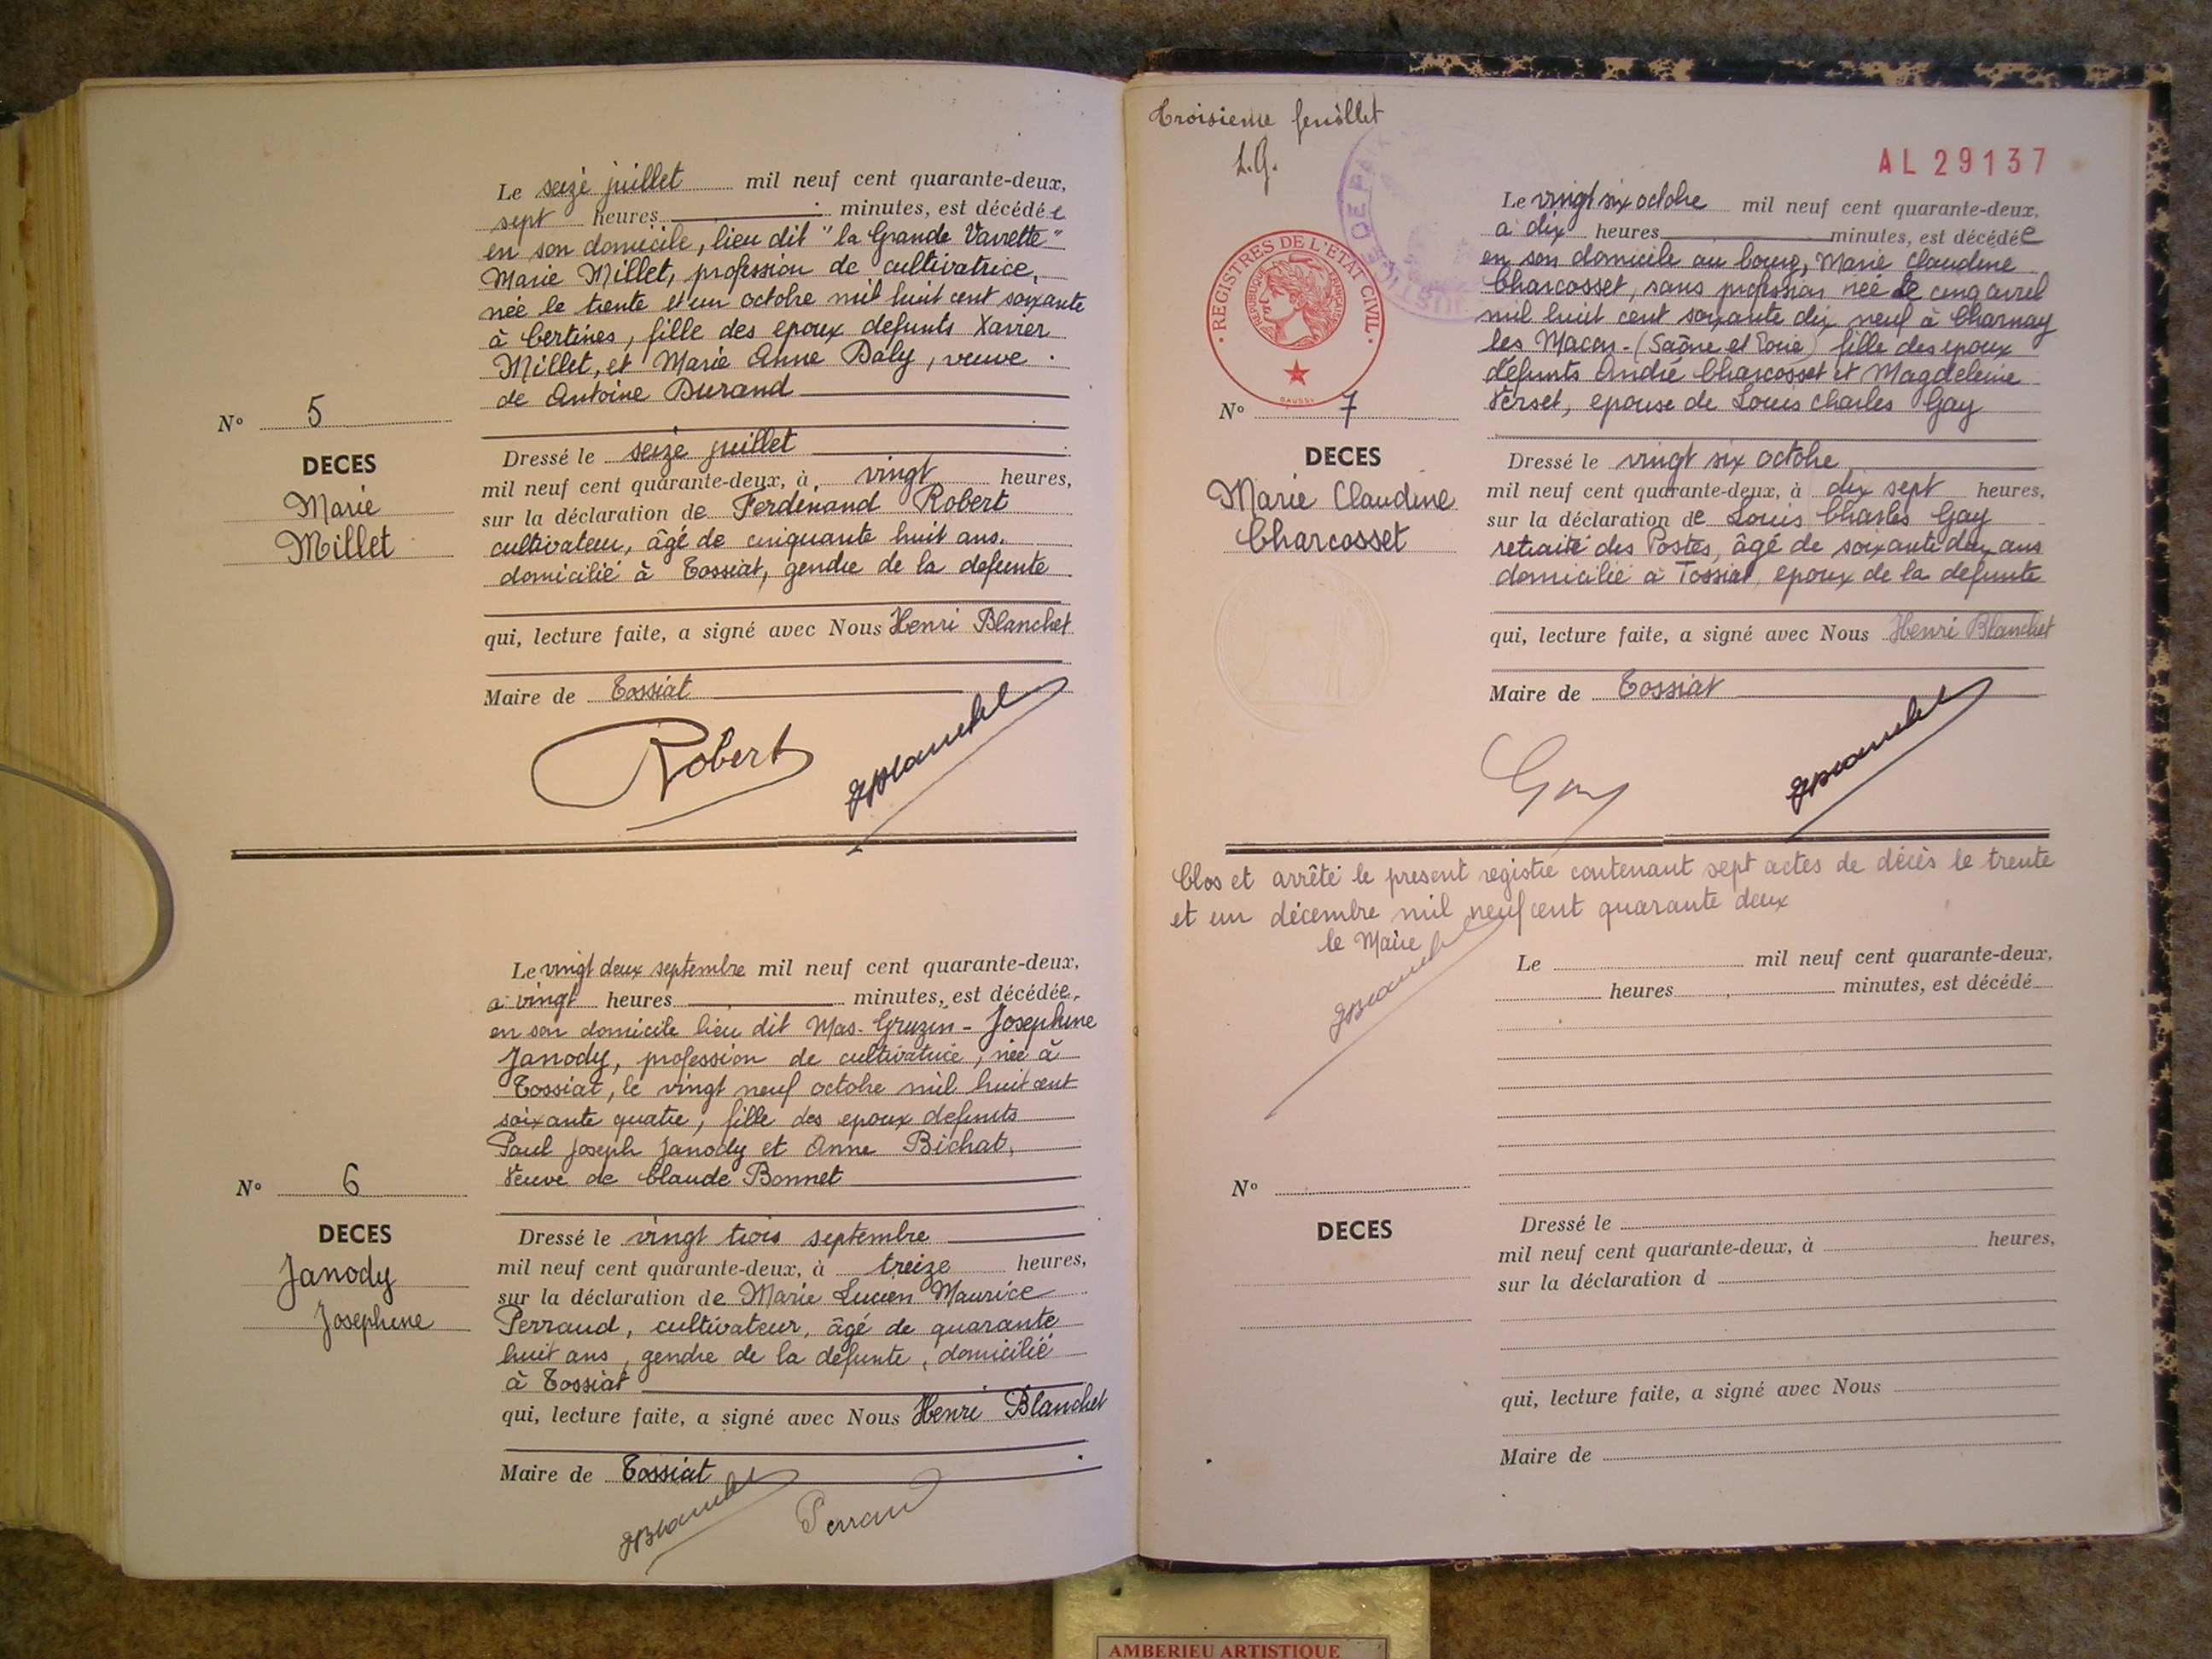 Le seize juillet mil neuf cent quarante-deux,
sept heures minutes, est décédée
en son domicile, lieu dit "la Grande Vavrette"
Marie Millet, profession de cultivatrice,
née le trente et un octobre mil huit cent soixante
à Certines, fille des epoux defunts Xavier
Millet, et Marie Anne Daly, veuve
de Antoine Durand
N° 5
DECES
Marie
Millet
Dressé le seize juillet
mil neuf cent quarante-deux, à vingt heures,
sur la déclaration de Ferdinand Robert
cultivateur, âgé de cinquante huit ans.
domicilié à Tossiat, gendre de la defunte
qui, lecture faite, a signé avec Nous Henri Blanchet
Maire de Tossiat
Robert HBlanchet
Le vingt deux septembre mil neuf cent quarante-deux,
a vingt heures minutes, est décédée,
en son domicile lieu dit Mas-Gruzin - Josephine
Janody, profession de cultivatrice, née à
Tossiat, le vingt neuf octobre mil huit cent
soixante quatre, fille des epoux defunts
Paul Joseph Janody et Anne Bichat,
Veuve de Claude Bonnet
N° 6
DECES
Janody
Josephine
Dressé le vingt trois septembre
mil neuf cent quarante-deux, à treize heures,
sur la déclaration de Marie Lucien Maurice
Perraud, cultivateur, âgé de quarante
huit ans, gendre de la defunte, domicilié
à Tossiat
qui, lecture faite, a signé avec Nous Henri Blanchet
Maire de Tossiat
HBlanchet Perraud
Troisieme feuillet
L.G.
AL 29137
DE PAIX
REGISTRES DE L'ETAT CIVIL
REPUBLIQUE FRANCAISE
Le vingt six octobre mil neuf cent quarante-deux,
a dix heures minutes, est décédée
en son domicile au bourg, Marie Claudine
Charcosset, sans profession née le cinq avril
mil huit cent soixante dix neuf à Charnay
les Macon - (Saône et Loire) fille des epoux
défunts André Charcosset et Magdeleine
Verset, epouse de Louis Charles Gay
N° 7
DECES
Marie Claudine
Charcosset
Dressé le vingt six octobre
mil neuf cent quarante-deux, à dix sept heures,
sur la déclaration de Louis Charles Gay
retraité des Postes, âgé de soixante dix ans
domicilié à Tossiat, epoux de la defunte
qui, lecture faite, a signé avec Nous Henri Blanchet
Maire de Tossiat
Gay HBlanchet
Clos et arrêté le present registre contenant sept actes de décès le trente
et un décembre mil neuf cent quarante deux
le Maire
HBlanchet
Le mil neuf cent quarante-deux,
heures minutes, est décédé
N°
DECES
Dressé le
mil neuf cent quarante-deux, à heures,
sur la déclaration d
qui, lecture faite, a signé avec Nous
Maire de
AMBERIEU ARTISTIQUE